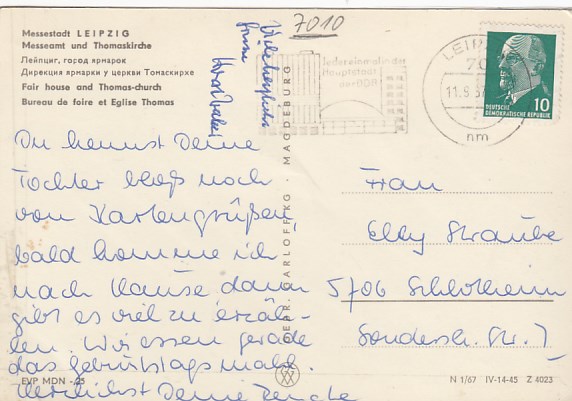 Messestadt LEIPZIG
Messeamt und Thomaskirche
Лейпциг, город ярмарок
Дирекция ярмарки у церкви Томаскирхе
Fair house and Thomas-church
Bureau de foire et Eglise Thomas
7010
Jeder einmal in der
Hauptstadt
der DDR
LEIPZIG
70
11.9.
nm
DEUTSCHE
DEMOKRATISCHE REPUBLIK
10
Du kennst Deine
Tochter bloß noch
von Kartengrüßen,
bald komme ich
nach Hause dann
gibt es viel zu erzäh-
len. Wir essen gerade
das Geburtstagsmahl.
Herzlichst Deine
Viele herzliche
Grüße
GEBR. GARLOFF KG. MAGDEBURG
Frau
Elly Straube
5706 Schlotheim
Sondersh. Str. 7
EVP MDN -,25
N 1/67 IV-14-45 Z 4023